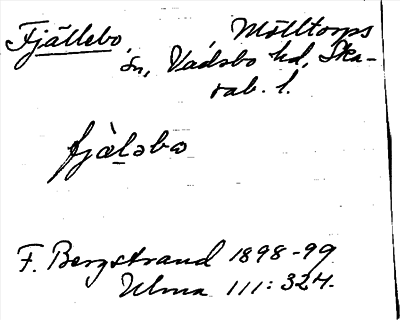 Fjällebo, , Mölltorps
sn, Vadsbo hd, Ska-
rab. l.
fjàləbo
F. Bergstrand 1898-99
Ulma 111:324.